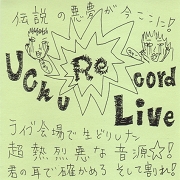 伝説の悪夢が今ここに!
Uchu Record
Live
ライヴ会場で生どりした
超熱烈悪な音源☆!
君の耳で確かめろ そして割れ!